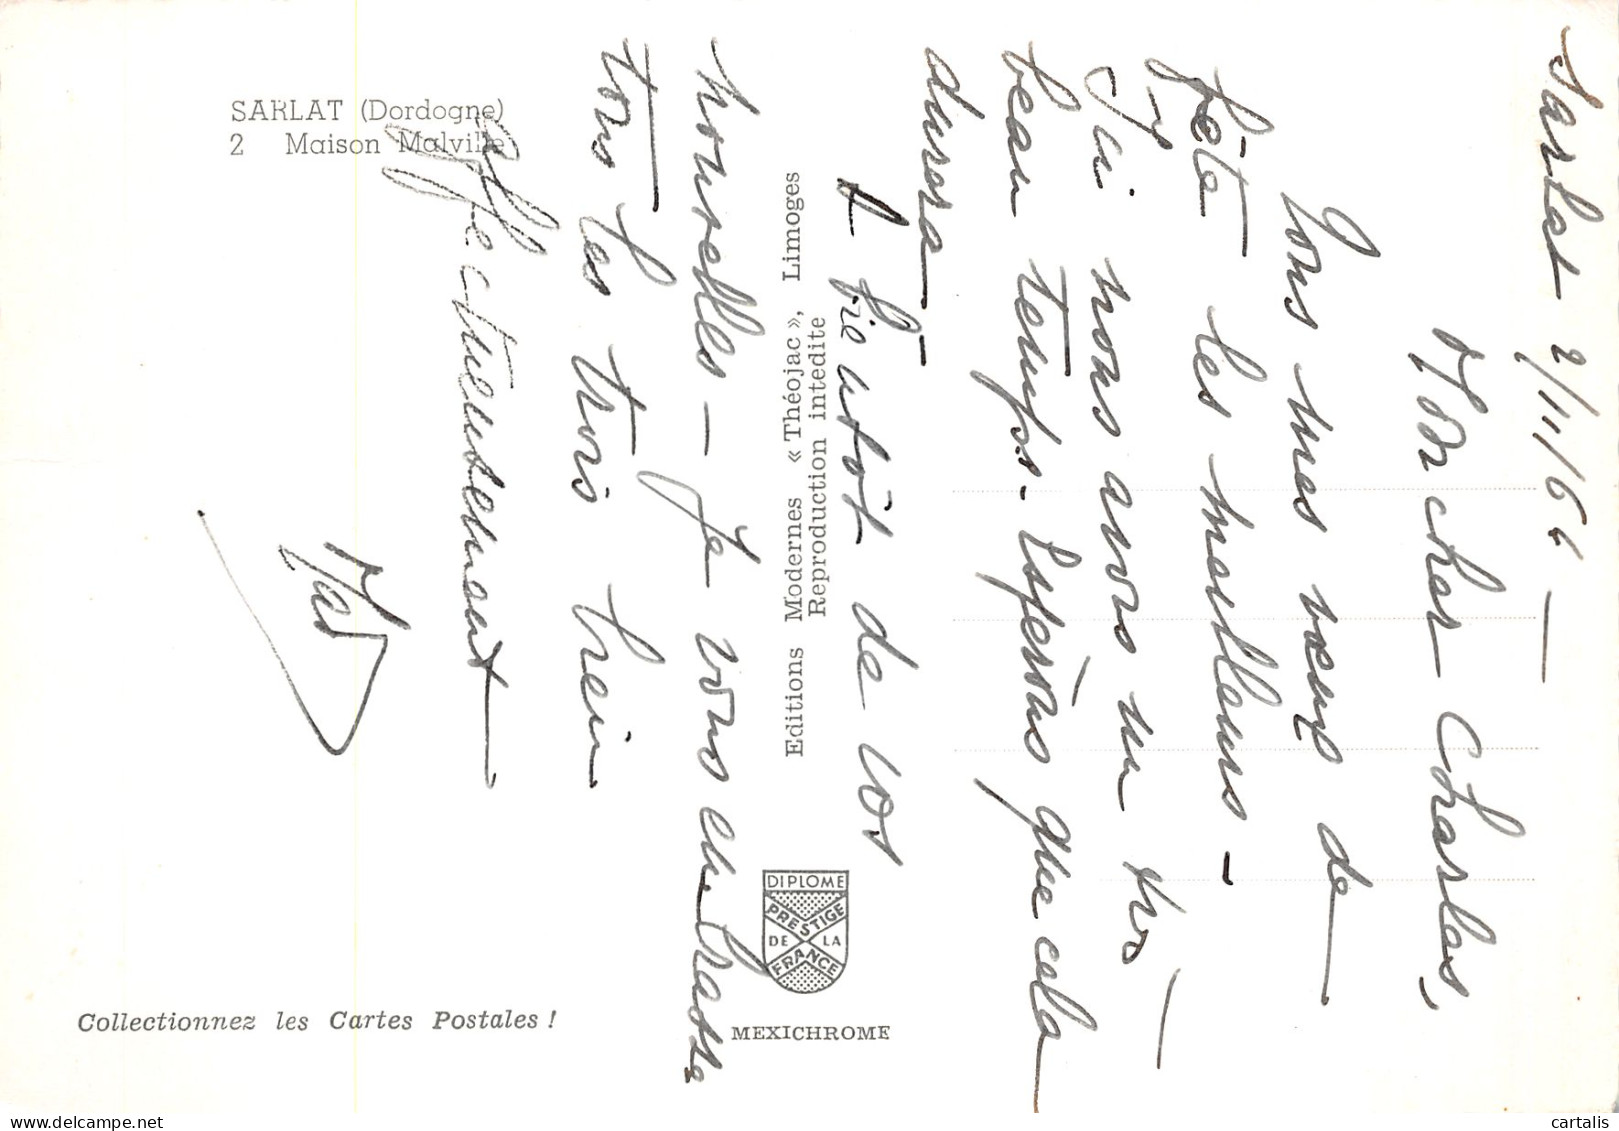 SARLAT (Dordogne)
2 Maison Malville
Editions Modernes « Théojac », Limoges
Reproduction intedite
DIPLOME
PRESTIGE
DE LA
FRANCE
MEXICHROME
Collectionnez les Cartes Postales !
Sarlat 2/11/66 —
Mon cher Charles,
Tous mes vœux de
fête les meilleurs -
Ici nous avons un
beau temps - Espérons que cela
durera -
A bientôt de vos
nouvelles - Je vous embrasse
tous les trois bien
affectueusement
cartalis